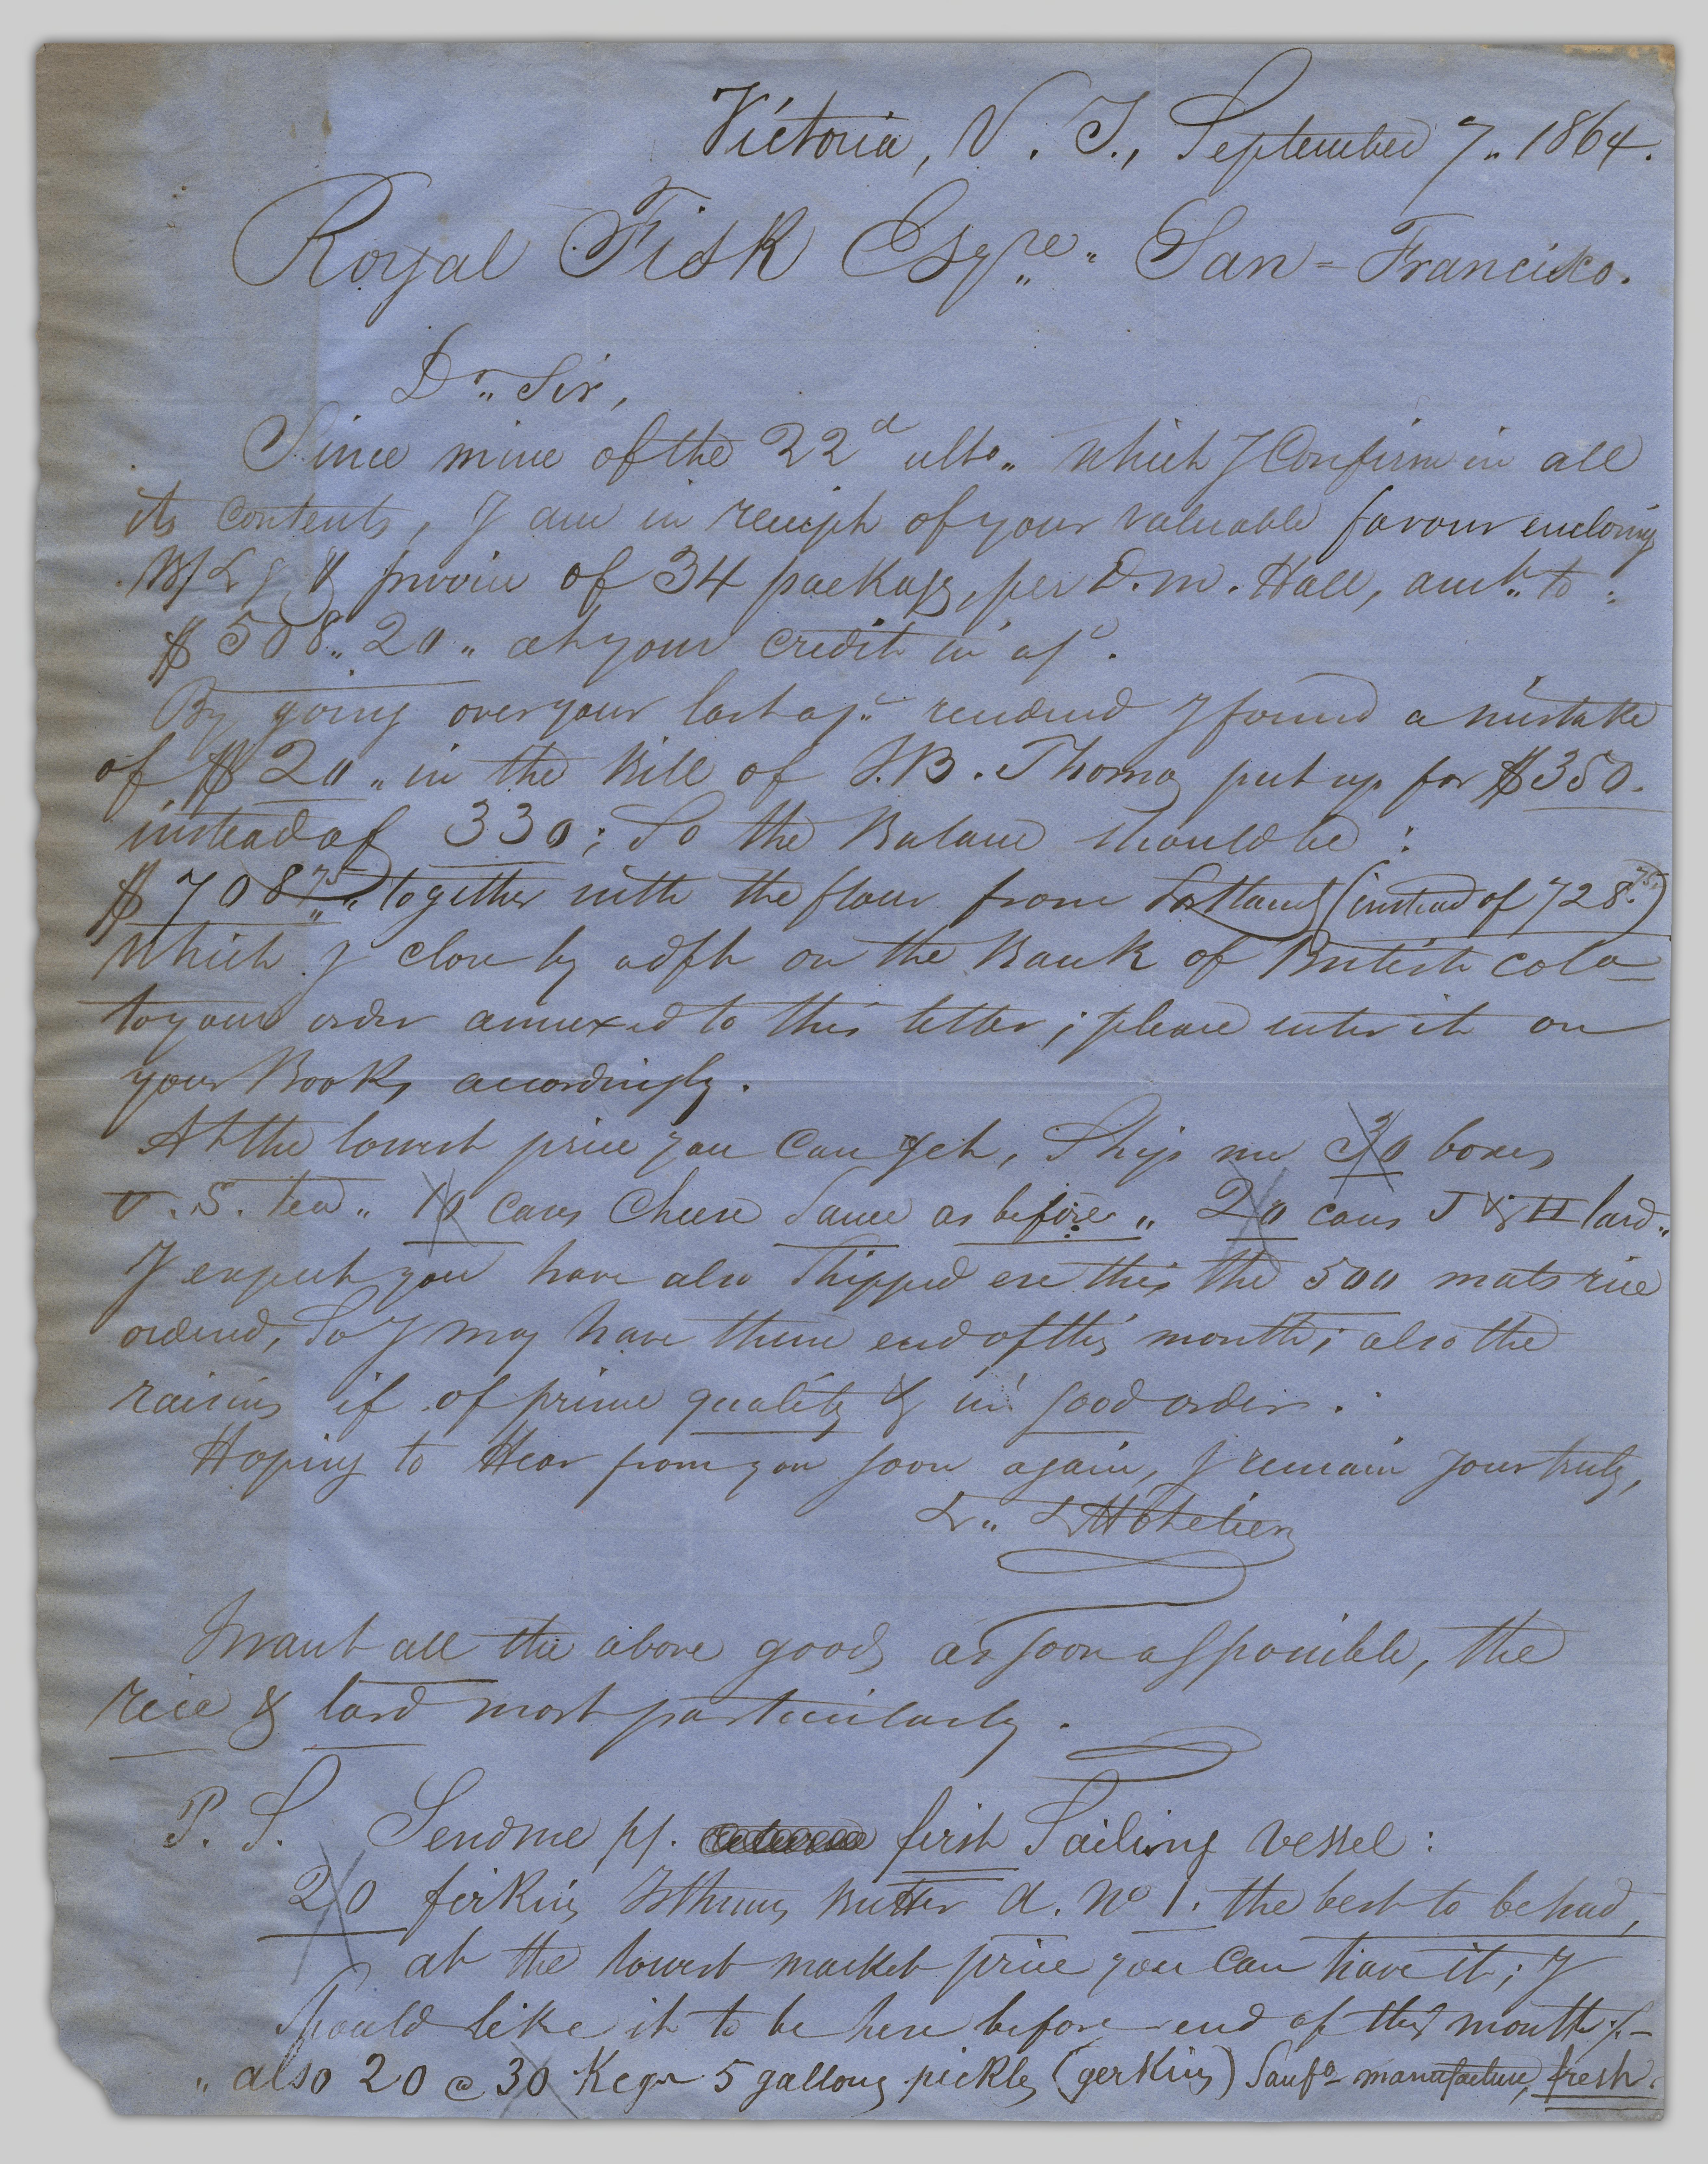 Victoria, V. I., September 7„ 1864.
Royal Fisk Esqre„ San-Francisco.
Dr„ Sir,
Since mine of the 22d ulto„ which I Confirm in all
its contents, I am in receiph of your valuable favour enclosing
B/Lg & invoice of 34 packags, per D. M. Hall, amt„ to :
$ 508„ 20„ at your credit in a/c.
By going over your last a/c„ rendered I found a mistake
of $ 20„ in the Bill of J. B. Thomas put up for $350.
instead of 330; So the Balance should be :
$ 708„75„ together with the flour from Portland (instead of 728.75.)
which I close by a dft on the Bank of British Cola
to your order annexed to this letter; please enter it on
your Books accordingly.
At the lowest price you can get, Ship me 30 boxes
O. S. tea„ 10 cases Cheese Same as before„ 20 cases J & H lard„
I expect you have also Shipped ere this the 500 mats rice
ordered, So I may have them end of this month; also the
raisins if of prime quality & in good order.
Hoping to Hear from you soon again, I remain yours truly,
L„
I want all the above goods as soon as possible, the
rice & lard most particularly.
P. S. Send me pr. first Sailing vessel :
20 firkins Isthmus Butter A. No 1. the best to be had,
at the lowest market price you can have it; I
should like it to be here before end of this month;-
„ also 20 @ 30 Kegs 5 gallons pickles (gerkins) Sanfo manufacture, fresh.